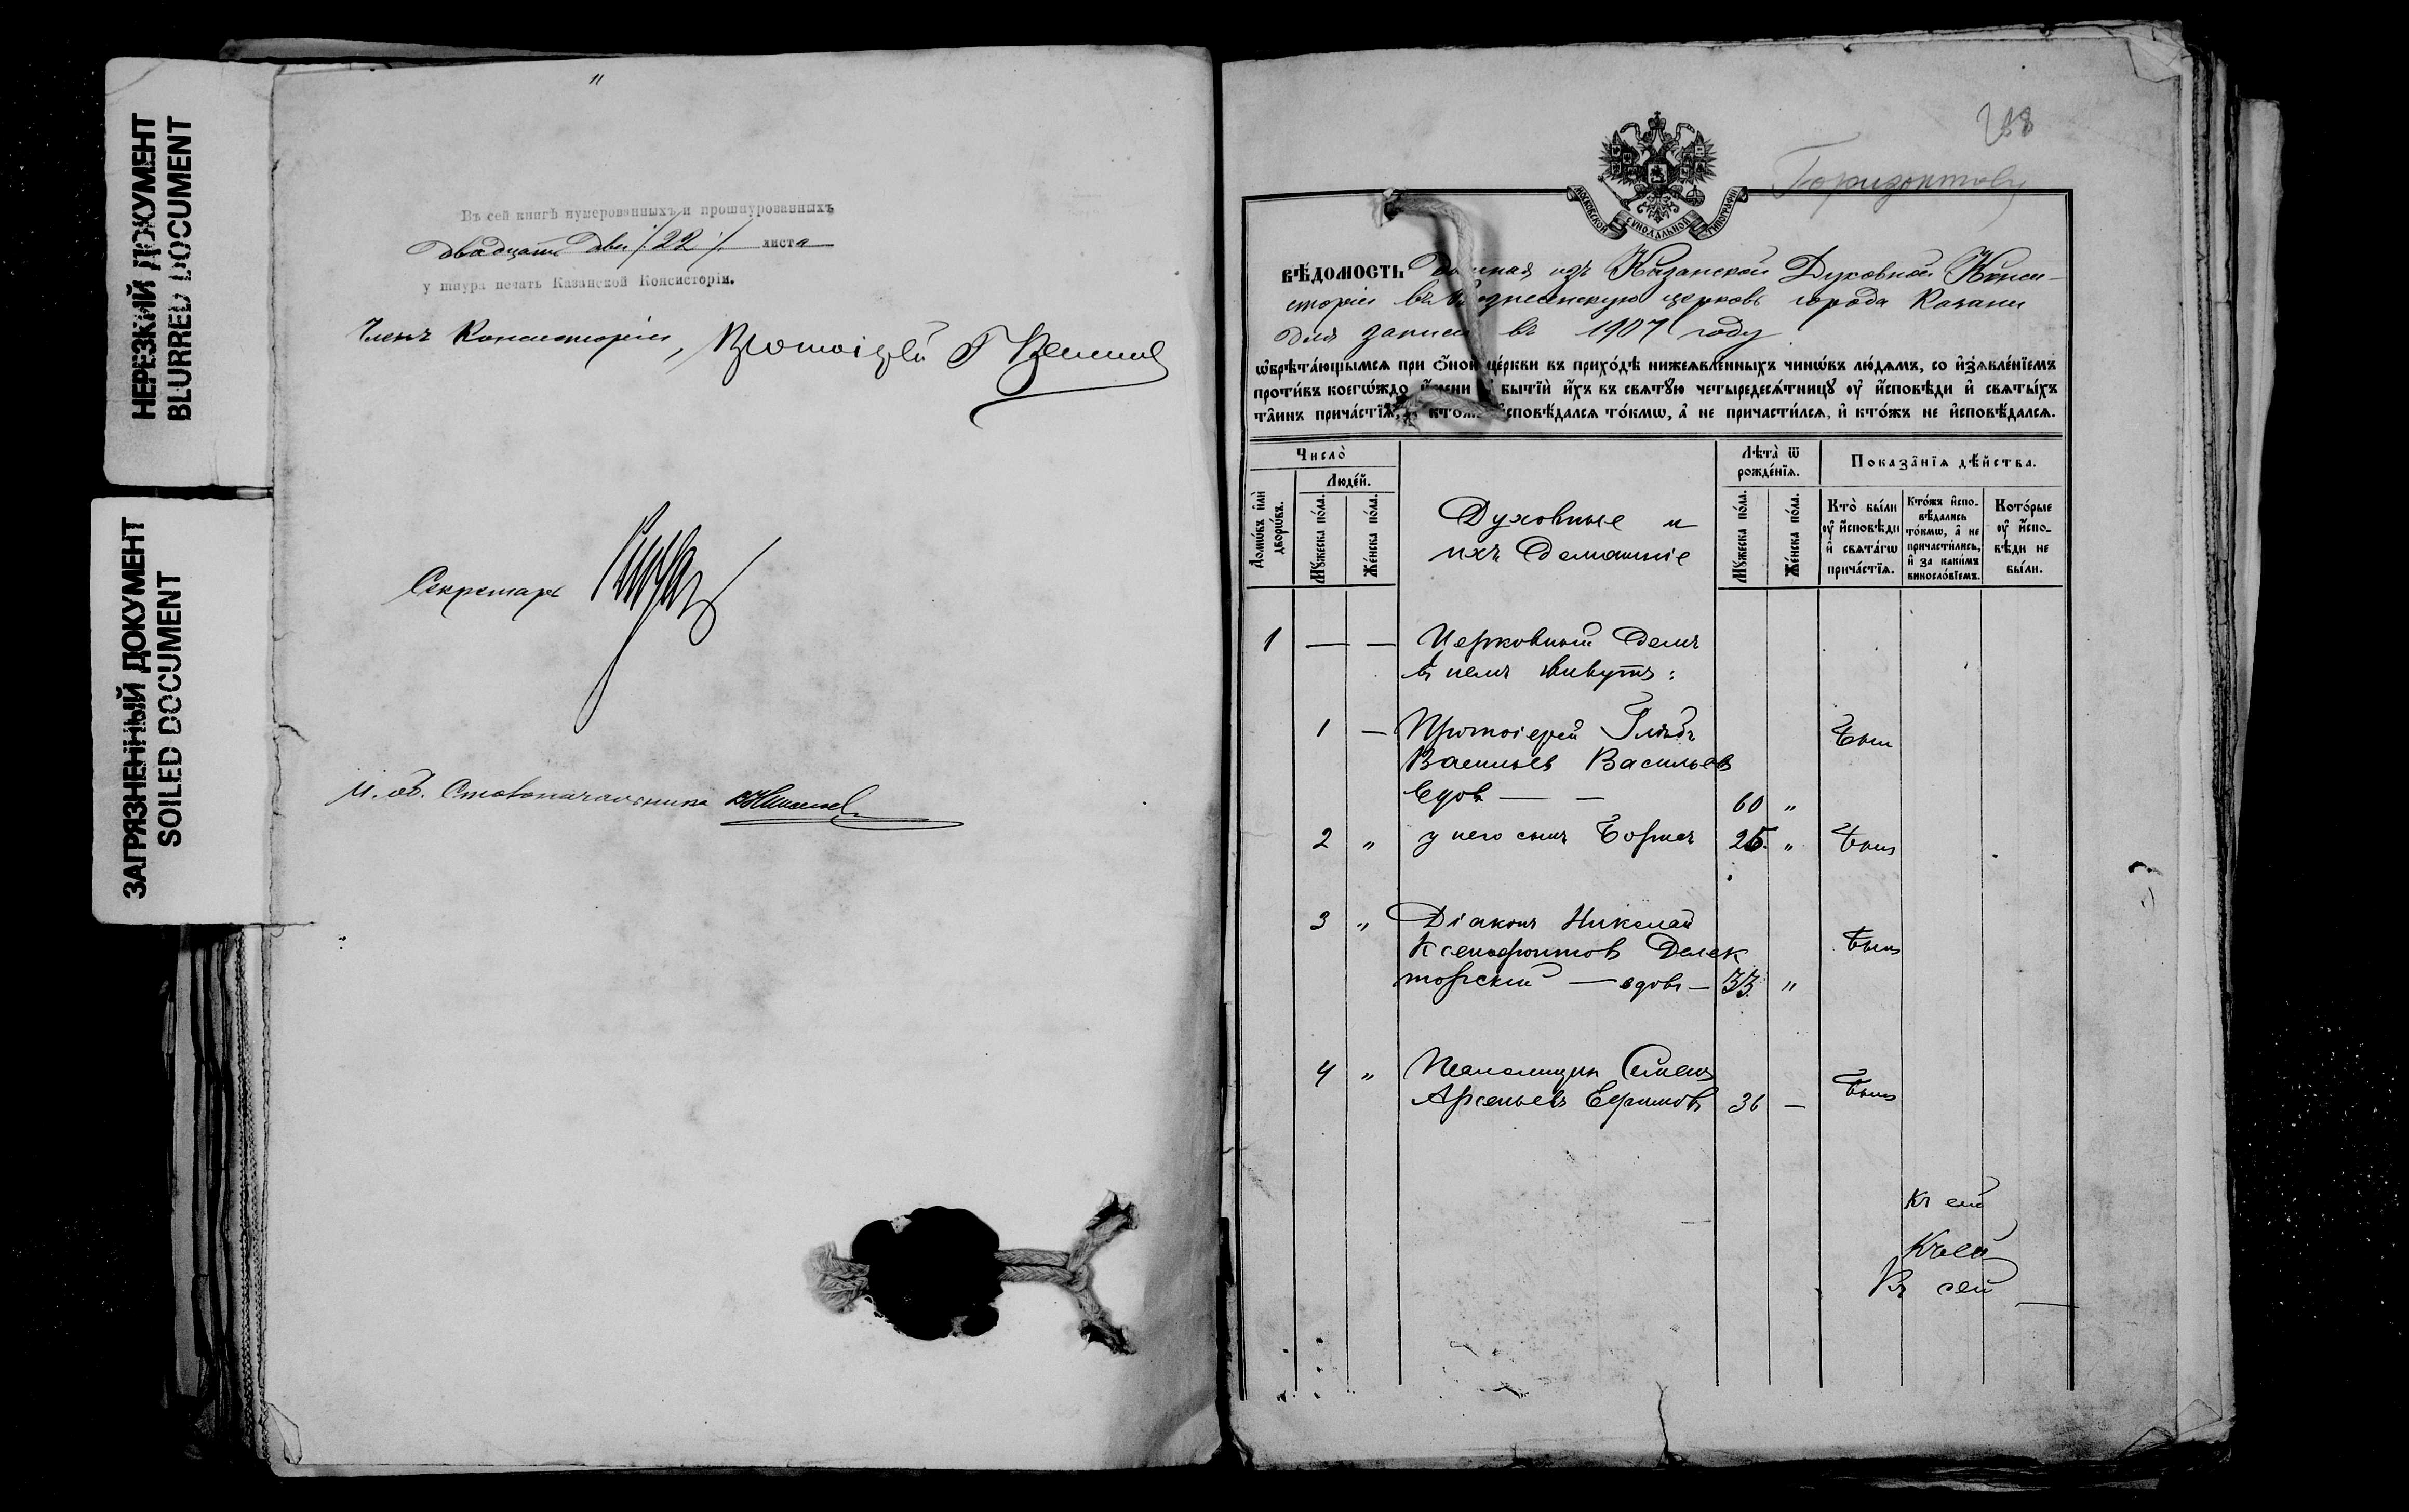 НЕРЕЗКИЙ ДОКУМЕНТ
BLURRED DOCUMENT
ЗАГРЯЗНЕННЫЙ ДОКУМЕНТ
SOILED DOCUMENT
Въ сей книгѣ нумерованныхъ и прошнурованныхъ
двадцать два /.22./ листа
у шнура печать Казанской Консисторіи.
Членъ Консисторіи, Протоіерей
Секретарь
И. об. Столоначальника
МОСКОВСКОЙ СУНОДАЛЬНОЙ ТИПОГРАФІИ
вѣ́домость данная изъ Казанской Духовной Конси-
сторіи въ Вознесенскую церковь города Казани
для записи въ 1907 году
ѡ҆брѣта́ющымсѧ при ѻ҆́ной це́ркви въ прихо́дѣ нижеѧвле́нныхъ чинѡ́въ лю́демъ, со и҆з̾ѧвле́нїемъ
проти́въ коегѡ́ждо и҆́мени бытїѝ и҆́хъ въ свѧту́ю четыредесѧ́тницу ᲂу҆ и҆́сповѣди и҆ свѧты́хъ
та̑инъ прича́стїѧ, кто́жъ и҆сповѣ́дался то́кмѡ, а҆ не причасти́лсѧ, и҆ кто́жъ не и҆сповѣ́дался.
Число̀
Люде́й.
Домѡ́въ и҆лѝ дворѡ́въ.
Мꙋ́жеска по́ла.
Же́нска по́ла.
Духовные и
ихъ домашніе
Лѣ́та ѿ рожде́нїѧ.
Мꙋ́жеска по́ла.
Же́нска по́ла.
Показа̑нїѧ дѣ́йства.
Кто̀ бы́ли ᲂу҆ и҆́сповѣди и҆ свѧта́гѡ прича́стїѧ.
Кто́жъ и҆спо-вѣ́дались то́кмѡ, а҆ не причасти́лись, и҆ за каки́мъ винosло́вїемъ.
Кото́рые ᲂу҆ и҆́спо-вѣди не бы́ли.
1 — — Церковный домъ
въ немъ живутъ:
1 — Протоіерей Глѣбъ Былъ
Васильевъ Васильевъ
вдовъ — — 60 "
2 " у него сынъ Борисъ 25. " Былъ
3 " Діаконъ Николай
Ксенофонтовъ Делек Былъ
торскій — вдовъ — 33 "
4 " Псаломщикъ Семенъ Былъ
Арсеньевъ Ефимовъ 36 —
Къ сей
Къ сей
Къ сей